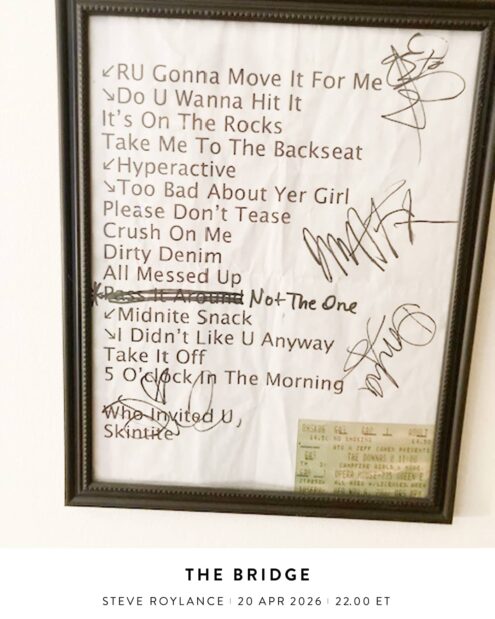 ↙RU Gonna Move It For Me
↘Do U Wanna Hit It
It's On The Rocks
Take Me To The Backseat
↙Hyperactive
↘Too Bad About Yer Girl
Please Don't Tease
Crush On Me
Dirty Denim
All Messed Up
*Pass It Around Not The One
↙Midnite Snack
↘I Didn't Like U Anyway
Take It Off
5 O'clock In The Morning
Who Invited U,
Skintite
GA1 ADULT
14.50 NO SMOKING 14.50
THE DONNAS
OPERA HOUSE
THE BRIDGE
STEVE ROYLANCE | 20 APR 2026 | 22.00 ET